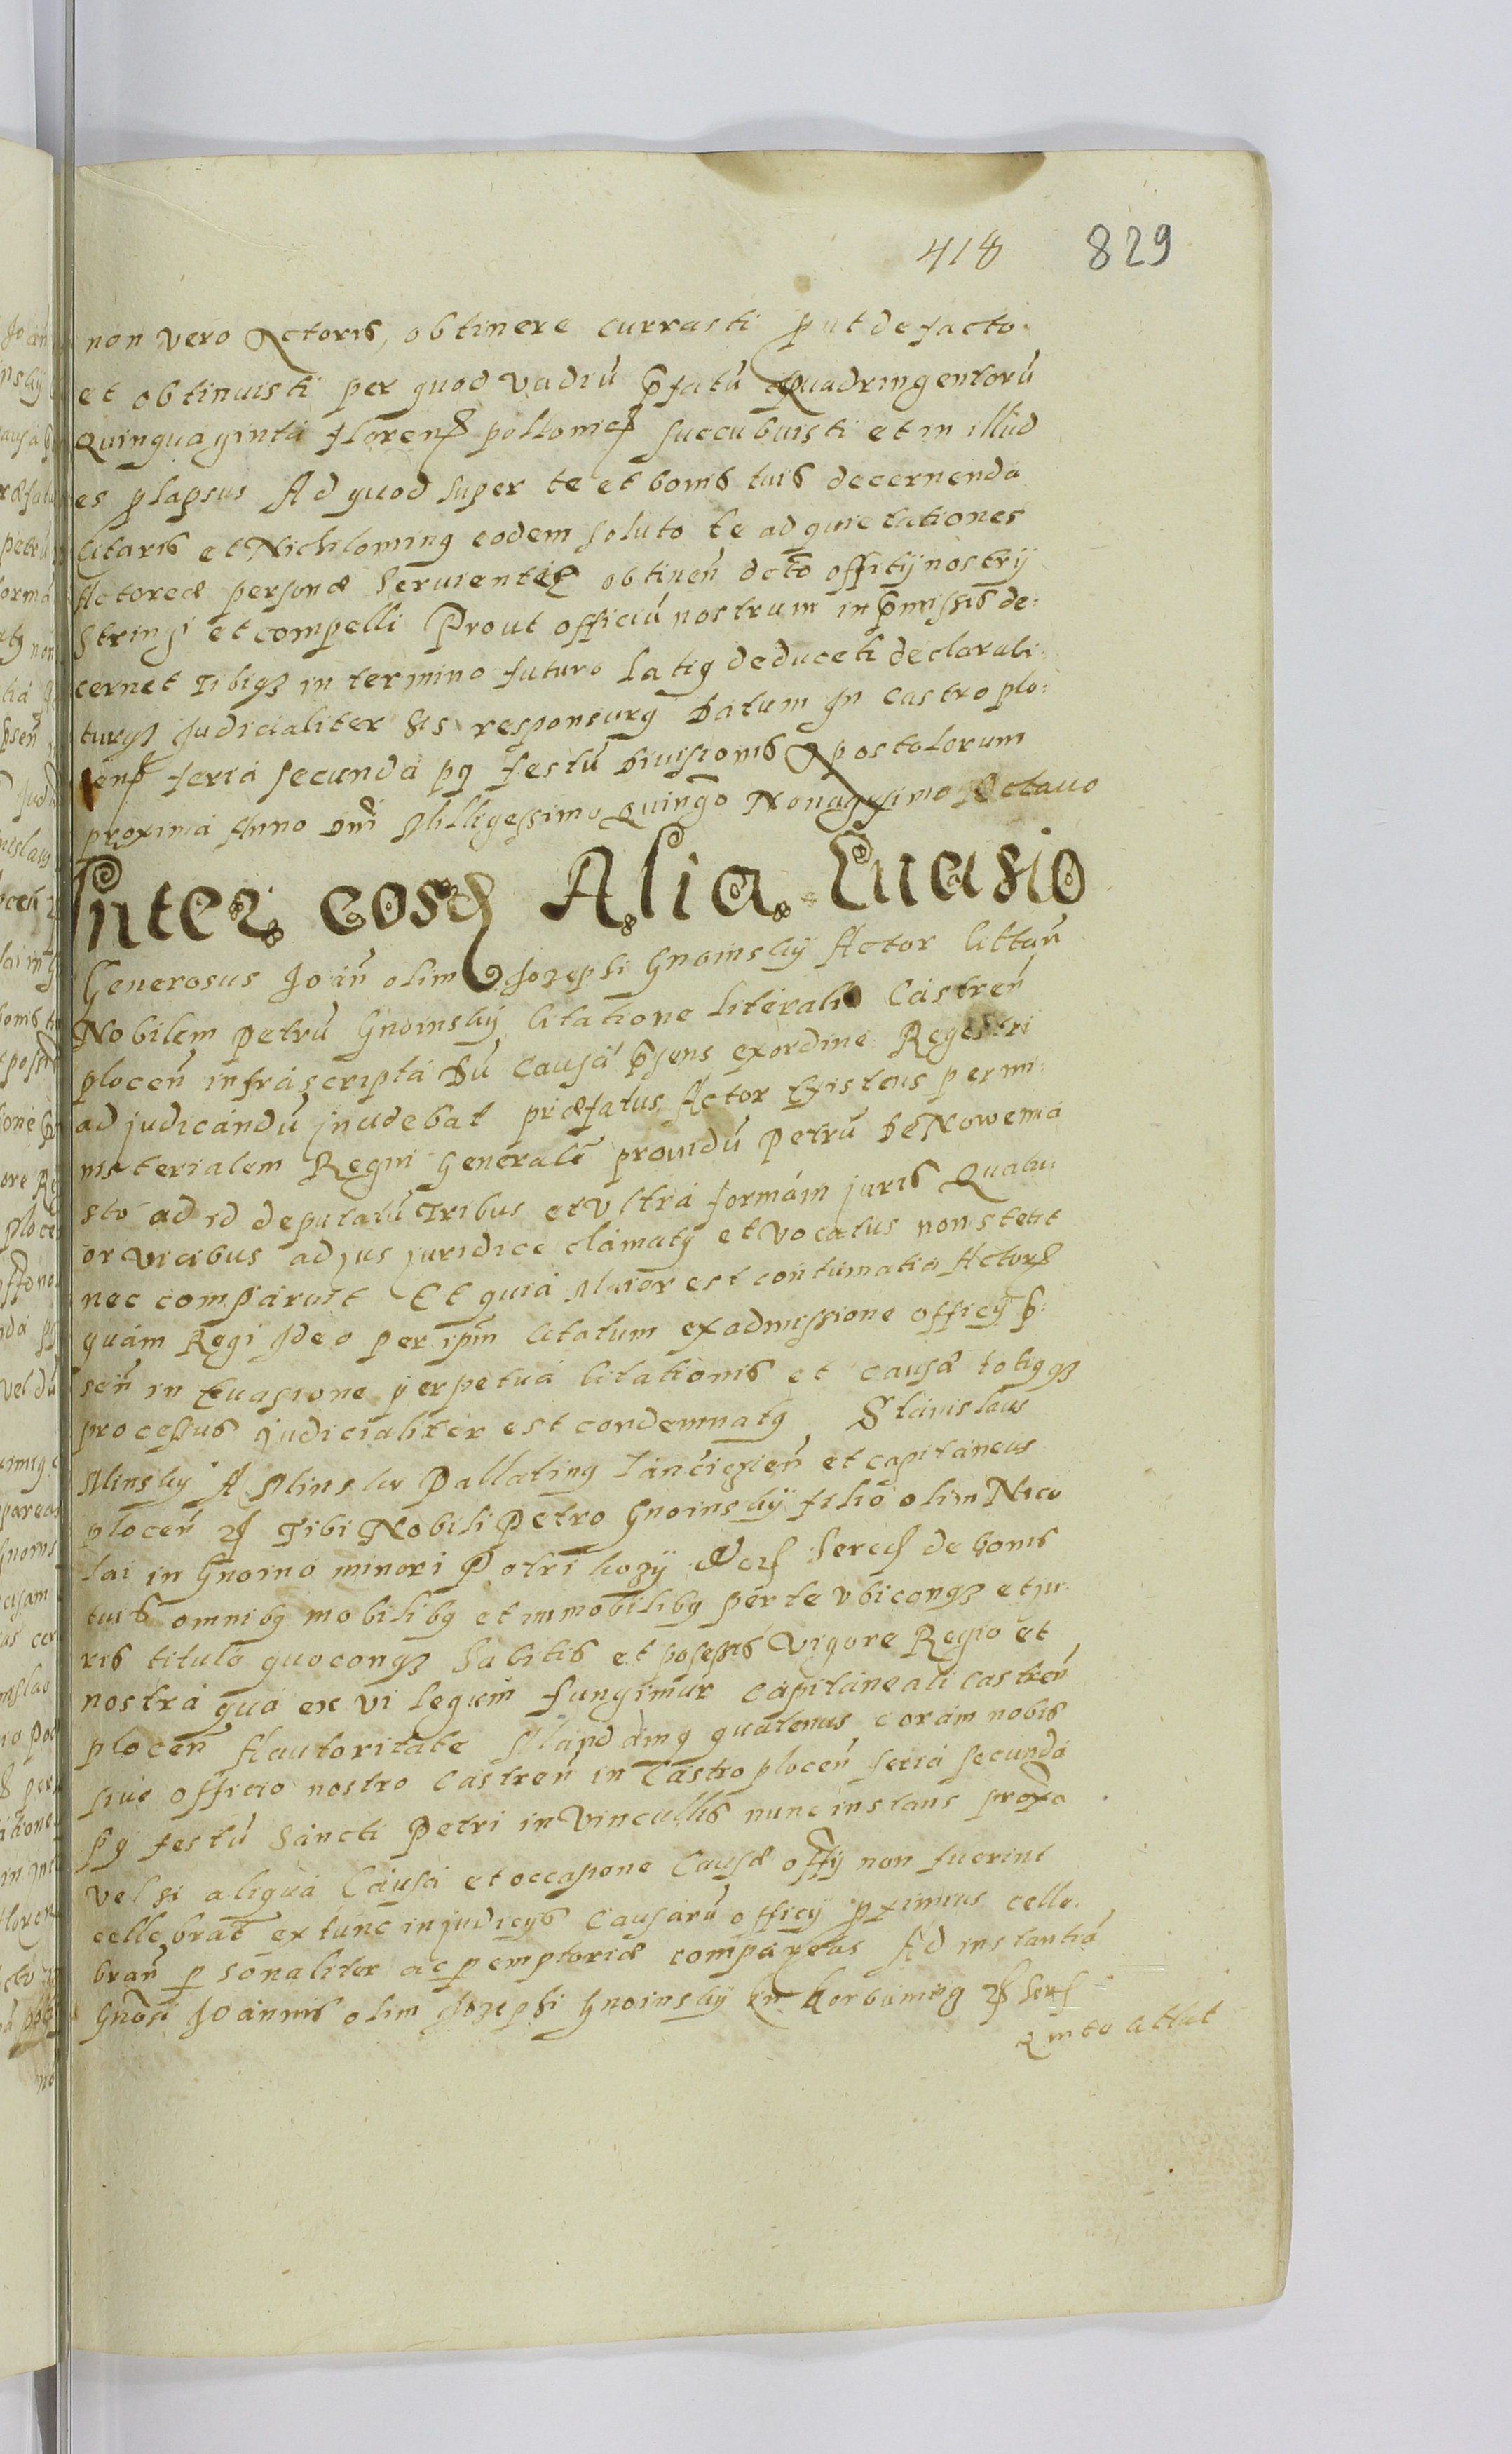 418 829
non vero Actoris, obtinere currasti put de facto
et obtinuisti per quod vadiū p̄fatū Quadringentorū
Quinquaginta florenʃ pollonicʃ succubuisti et in illud
es plapsus Ad quod super te et bonis tuis decernenda
Citaris et Nichilominꝰ eodem soluto te ad quietationes
Actoreæ personæ servientes obtineń dcto offitÿ nostrÿ
Stringi et compelli Prout officiū nostrum in p̄missis de:
cernet Tibiqꝫ in termino futuro latiꝰ deduceti declarabi:
turqꝫ Judicialiter Sis responsurꝰ Datum In Castro plo:
cenʃ feria secunda pꝰ festū Divisionis Apostolorum
proxima Anno Dn̄i Milligessimo Quingo Nonagesimo Octauo
Inter eosd Alia Euasio
Generosus Joań olim Jozephi Gnoinskÿ Actor Cittań
Nobilem Petrū Gnoinskÿ Citatione literali Castreń
ploceń infrascripta Dū Causa p̄sens ex ordine Regestri
ad judicandū incidebat præfatus Actor Existens per mi:
nisterialem Regni Generalē providū Petrū de Nowemia
sto ad id deputatū Tribus et vltra formam juris Quatu:
or vicibus ad jus juridice clamatꝰ et vocatus non stetit
nec comparuit Et quia Maior est contumatia Actorʃ
quam Regi Ideo per ipm̄ Citatum ex admissione officÿ p̄:
seń in Euasione perpetua Citationis et Causæ totiqꝫ
processus judicialiter est condemnatꝰ Stanislaus
Minskÿ A Minsko Pallatinꝰ Lancicień et capitaneus
ploceń ꝛʃ Tibi Nobili Petro Gnoinskÿ filio olim Nico
lai in Gnoino minori Potrikozÿ hered de bonis
tuis omnibꝰ mobilibꝰ et immobilibꝰ per te vbiconqꝫ et ju:
ris titulo quoconqꝫ habitis et possessis Vigore Regio et
nostra qua ex vi legum fungimur Capitaneali Castreń
ploceń Hautoritate Mandamꝰ quatenus coram nobis
siue officio nostro Castreń in Castro ploceń feria secunda
pꝰ festū Sancti Petri in Vincullis nunc instans proxa
vel si aliqua Causa et occasione Causæ offÿ non fuerint
cellebrat̄ extunc in judicÿs Causarū officÿ pximius celle:
brań psonaliter ac pemptoriæ compareas Ad instantiā
Gnōsi Joannis olim Jozephi Gnoinskÿ